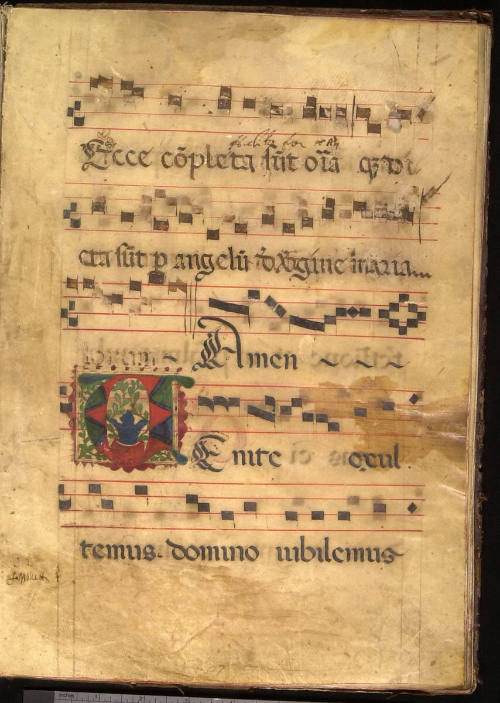 Ecce cõpleta sũt oĩa q̃ di
cta sũt p angelũ d̃ virgine maria
Amen
Enite exul
temus domino iubilemus